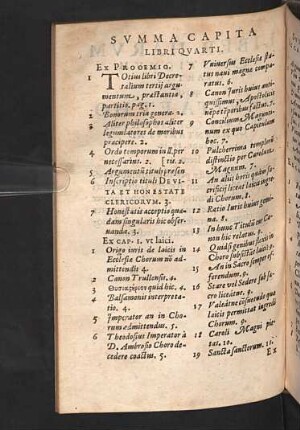 SVMMA CAPITA
LIBRI QVARTI.
EX PROOEMIO.
1 TOtius libri Decre-
talium tertij argu-
mentum, præstantia,
partitio. pag. 1.
2 Bonorum tria genera. 2.
3 Aliter philosophos aliter
legumlatores de moribus
præcipere. 2.
4 Ordo temporum in II. per
necessarius. 2.
5 Argumentū tituli
6 Inscriptio tituli DE VI-
TA ET HONESTATE
CLERICORVM. 3.
7 Honestatis acceptio quæ-
dam singularis hîc obser-
uanda. 3.
EX CAP. I. vt laici.
1 Origo iuris de laicis in
Ecclesiæ Chorum nō ad-
mittendis 4.
2 Canon Trullensis. 4.
3 quid hîc. 4.
4 Balsamonis interpreta-
tio. 4.
5 Imperator an in Cho-
rum admittendus. 5.
6 Theodosius Imperator à
D. Ambrosio Choro de-
cedere coactus. 5.
7 Vniuersus Ecclesiæ sta-
tus naui magnæ compa-
ratus. 6.
8 Canon Iuris huius anti-
quissimus, Apostolicis
nepotibus factus. 7.
9 Canon Moguntinen-
num ex quo Capitulum
hoc.
10 Pulcherrima templorū
distinctio per Carolum
Magnum. 7.
11 An alibi quàm
laicis ingredi
Chorum. 8.
12 Ratio Iuris huius gemi-
na. 8.
13 In hunc Titulū cur Ca-
non hic relatus.
14 Quid si
Choro subsistāt laici
15 An in Sacro
rendo.
16 Stare vel Sedere sub sa-
cro liceatne. 9.
17 Valeátne consuetudo quæ
laicis permittat ingredi
Chorum. 9.
18 Caroli Magni pie-
tas. 10.
19 Sancta sanctorum. 11.
Ex